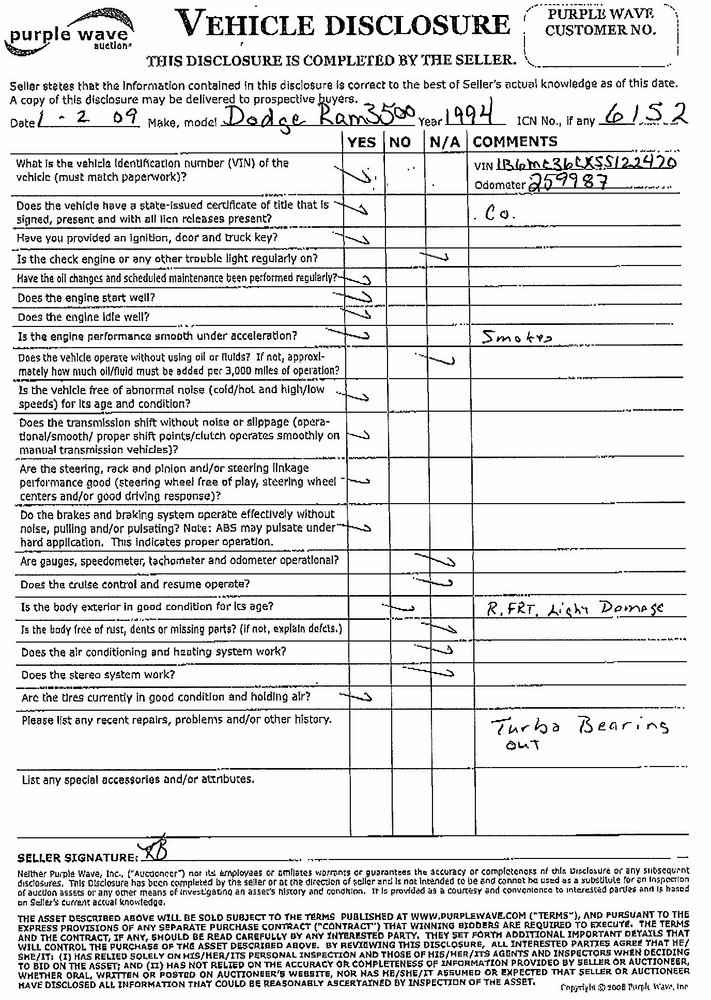 purple wave
auction
VEHICLE DISCLOSURE
PURPLE WAVE
CUSTOMER NO.
THIS DISCLOSURE IS COMPLETED BY THE SELLER.
Seller states that the information contained in this disclosure is correct to the best of Seller's actual knowledge as of this date.
A copy of this disclosure may be delivered to prospective buyers.
Date 1 - 2 09 Make, model Dodge Ram 3500 Year 1994 ICN No., if any 6152
YES NO N/A COMMENTS
What is the vehicle identification number (VIN) of the VIN 1B6MC36CXSS122470
vehicle (must match paperwork)? Odometer 259987
Does the vehicle have a state-issued certificate of title that is
signed, present and with all lien releases present? Co.
Have you provided an ignition, door and truck key?
Is the check engine or any other trouble light regularly on?
Have the oil changes and scheduled maintenance been performed regularly?
Does the engine start well?
Does the engine idle well?
Is the engine performance smooth under acceleration? Smokes
Does the vehicle operate without using oil or fluids? If not, approxi-
mately how much oil/fluid must be added per 3,000 miles of operation?
Is the vehicle free of abnormal noise (cold/hot and high/low
speeds) for its age and condition?
Does the transmission shift without noise or slippage (opera-
tional/smooth/ proper shift points/clutch operates smoothly on
manual transmission vehicles)?
Are the steering, rack and pinion and/or steering linkage
performance good (steering wheel free of play, steering wheel
centers and/or good driving response)?
Do the brakes and braking system operate effectively without
noise, pulling and/or pulsating? Note: ABS may pulsate under
hard application. This indicates proper operation.
Are gauges, speedometer, tachometer and odometer operational?
Does the cruise control and resume operate?
Is the body exterior in good condition for its age? R. FRT. Light Damage
Is the body free of rust, dents or missing parts? (if not, explain defcts.)
Does the air conditioning and heating system work?
Does the stereo system work?
Are the tires currently in good condition and holding air?
Please list any recent repairs, problems and/or other history. Turbo Bearing
out
List any special accessories and/or attributes.
SELLER SIGNATURE:
Neither Purple Wave, Inc., ("Auctioneer") nor its employees or affiliates warrants or guarantees the accuracy or completeness of this Disclosure or any subsequent
disclosures. This Disclosure has been completed by the seller or at the direction of seller and is not intended to be and cannot be used as a substitute for an inspection
of auction assets or any other means of investigating an asset's history and condition. It is provided as a courtesy and convenience to interested parties and is based
on Seller's current actual knowledge.
THE ASSET DESCRIBED ABOVE WILL BE SOLD SUBJECT TO THE TERMS PUBLISHED AT WWW.PURPLEWAVE.COM ("TERMS"), AND PURSUANT TO THE
EXPRESS PROVISIONS OF ANY SEPARATE PURCHASE CONTRACT ("CONTRACT") THAT WINNING BIDDERS ARE REQUIRED TO EXECUTE. THE TERMS
AND THE CONTRACT, IF ANY, SHOULD BE READ CAREFULLY BY ANY INTERESTED PARTY. THEY SET FORTH ADDITIONAL IMPORTANT DETAILS THAT
WILL CONTROL THE PURCHASE OF THE ASSET DESCRIBED ABOVE. BY REVIEWING THIS DISCLOSURE, ALL INTERESTED PARTIES AGREE THAT HE/
SHE/IT: (I) HAS RELIED SOLELY ON HIS/HER/ITS PERSONAL INSPECTION AND THOSE OF HIS/HER/ITS AGENTS AND INSPECTORS WHEN DECIDING
TO BID ON THE ASSET; AND (II) HAS NOT RELIED ON THE ACCURACY OR COMPLETENESS OF INFORMATION PROVIDED BY SELLER OR AUCTIONEER,
WHETHER ORAL, WRITTEN OR POSTED ON AUCTIONEER'S WEBSITE, NOR HAS HE/SHE/IT ASSUMED OR EXPECTED THAT SELLER OR AUCTIONEER
HAVE DISCLOSED ALL INFORMATION THAT COULD BE REASONABLY ASCERTAINED BY INSPECTION OF THE ASSET.
Copyright © 2008 Purple Wave, Inc